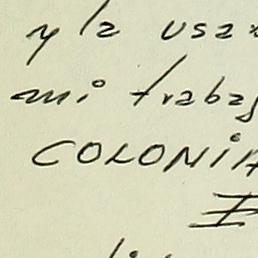 y la usa
mi trabaj
COLONIA